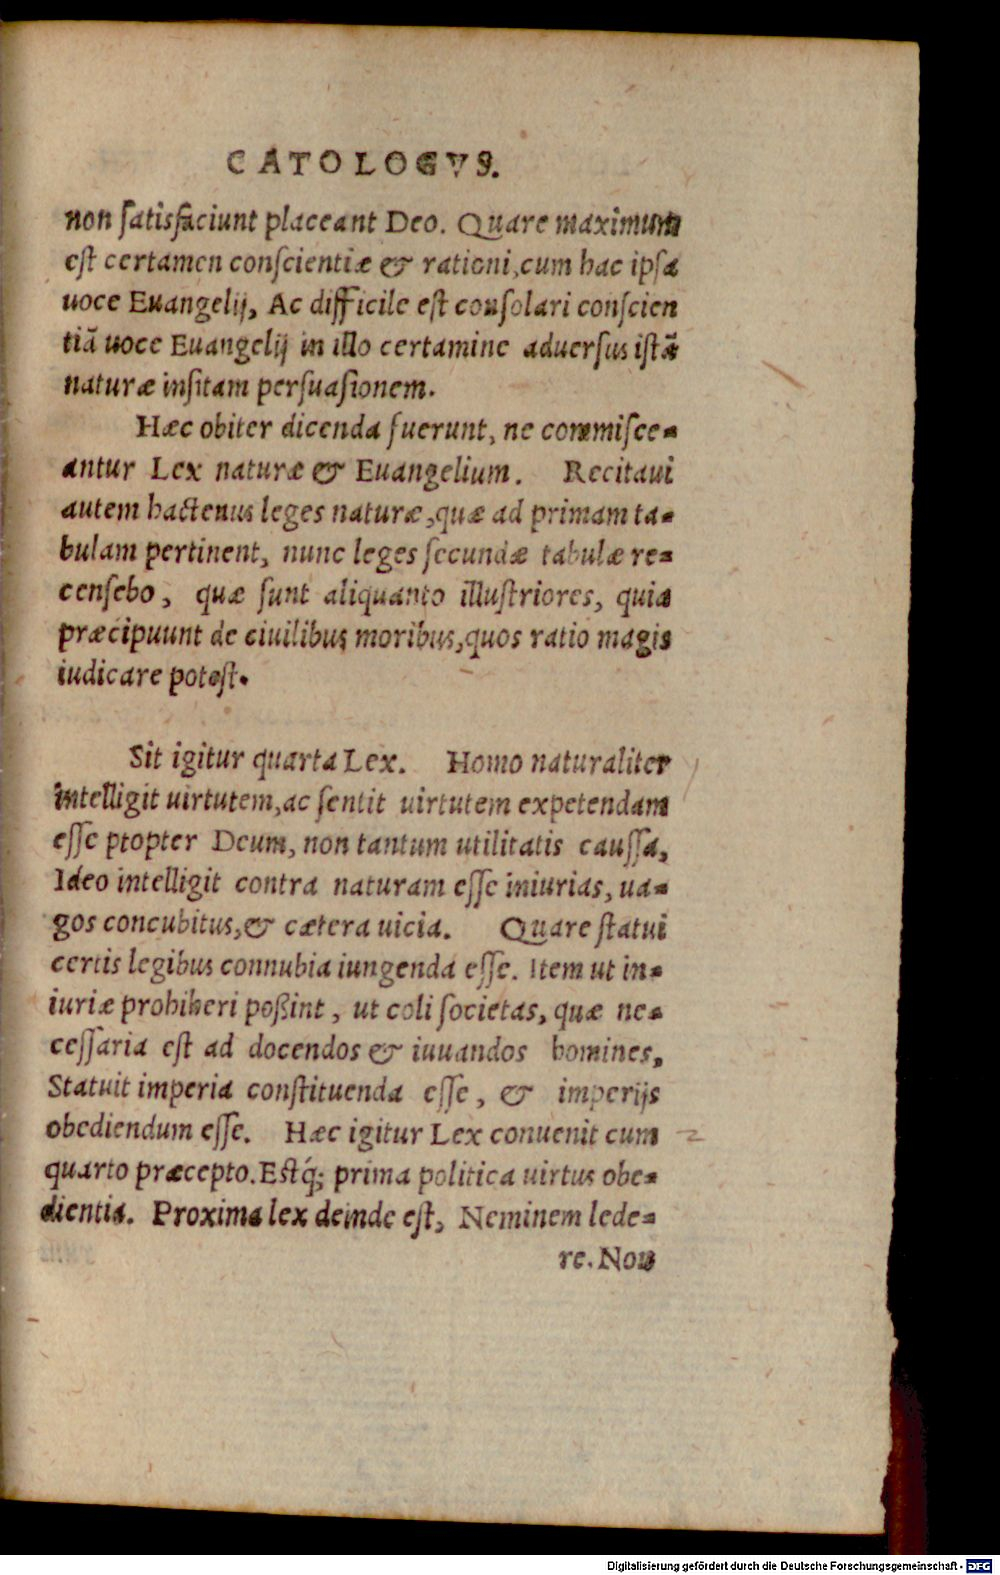 CATOLOGVS.
non satisfaciunt placeant Deo. Quare maximum
est certamen conscientiæ & rationi, cum hac ipsa
uoce Euangelij, Ac difficile est consolari conscien
tiā uoce Euangelij in illo certamine aduersus istā
naturæ insitam persuasionem.
Hæc obiter dicenda fuerunt, ne commisce=
antur Lex naturæ & Euangelium. Recitaui
autem hactenus leges naturæ, quæ ad primam ta=
bulam pertinent, nunc leges secundæ tabulæ re=
censebo, quæ sunt aliquanto illustriores, quia
præcipuunt de ciuilibus moribus, quos ratio magis
iudicare potest.
Sit igitur quarta Lex. Homo naturaliter
intelligit uirtutem, ac sentit uirtutem expetendam
esse ptopter Deum, non tantum utilitatis caussa,
Ideo intelligit contra naturam esse iniurias, ua=
gos concubitus, & cætera uicia. Quare statui
certis legibus connubia iungenda esse. Item ut in=
iuriæ prohiberi poßint, ut coli societas, quæ ne=
cessaria est ad docendos & iuuandos homines,
Statuit imperia constituenda esse, & imperijs
obediendum esse. Hæc igitur Lex conuenit cum
quarto præcepto. Estq́; prima politica uirtus obe=
dientia. Proxima lex deinde est, Neminem lede=
re. Non
Digitalisierung gefördert durch die Deutsche Forschungsgemeinschaft - DFG